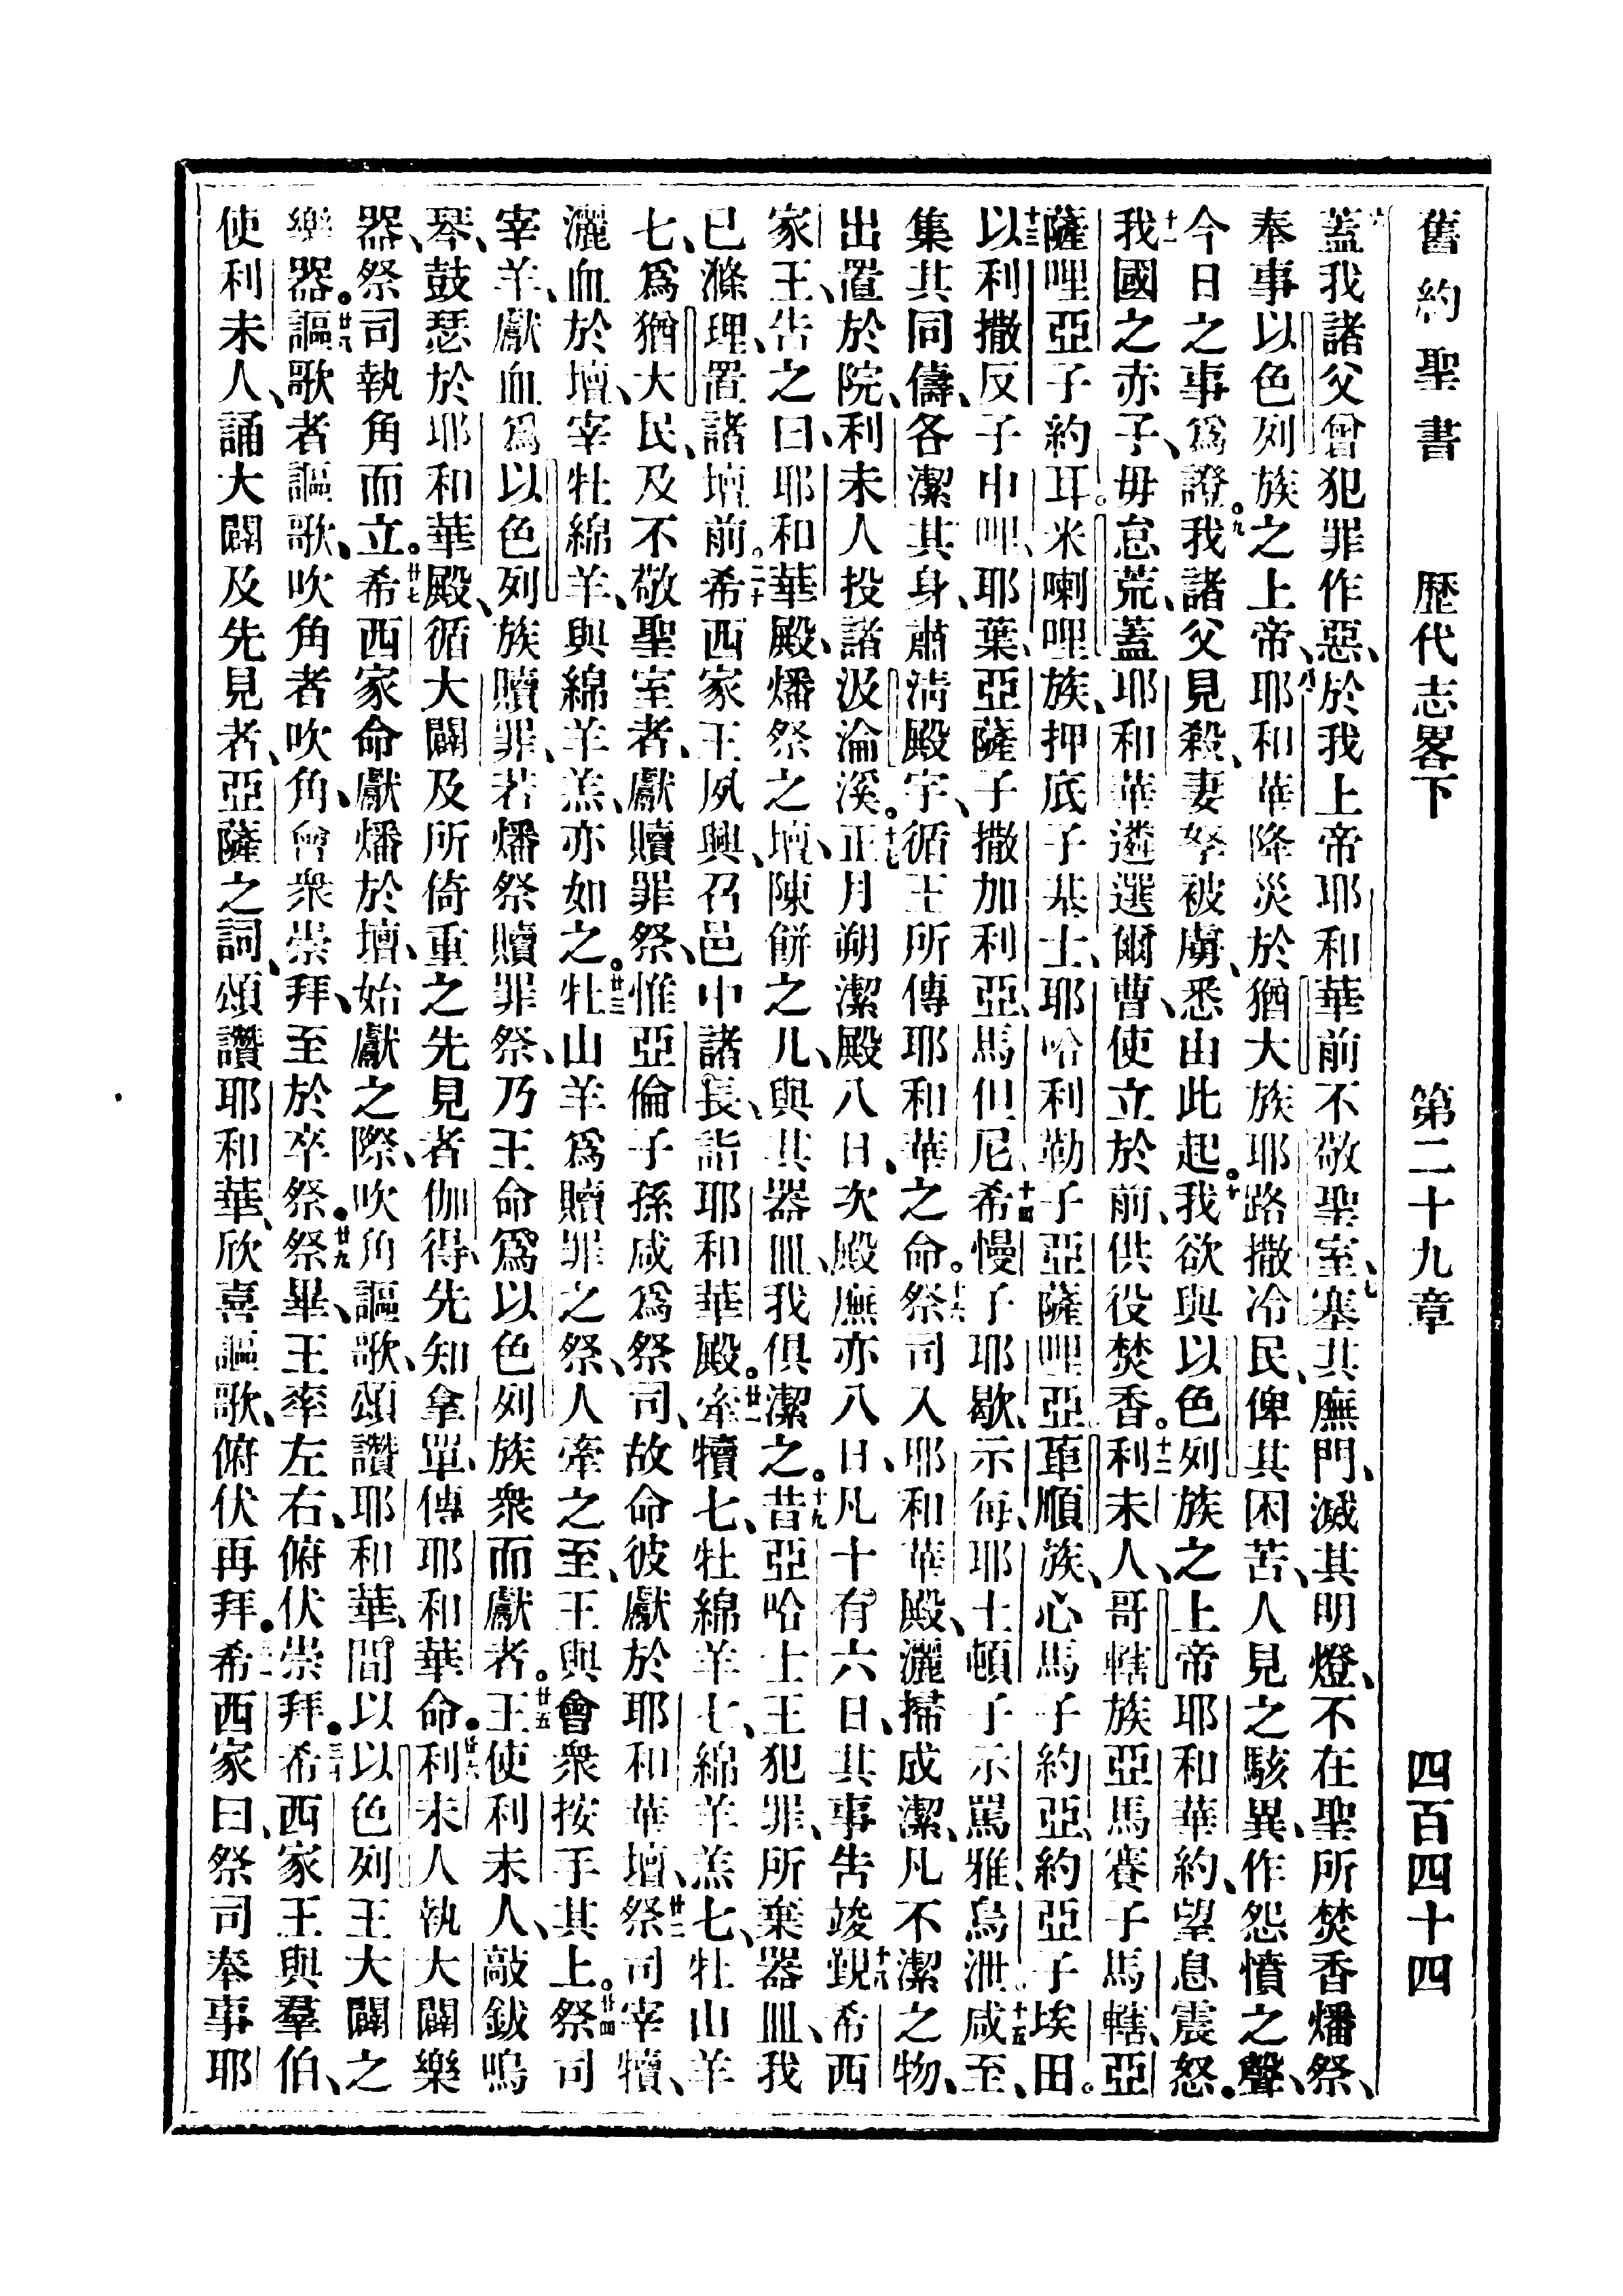 舊約聖書 歷代志畧下 第二十九章 四百四十四
六蓋我諸父曾犯罪作惡、於我上帝耶和華前不敬聖室、七塞其廡門、滅其明燈、不在聖所焚香燔祭、
奉事以色列族之上帝、八耶和華降災於猶大族耶路撒冷民、俾其困苦、人見之駭異、作怨憤之聲、
今日之事爲證。九我諸父見殺、妻孥被虜、悉由此起。十我欲與以色列族之上帝耶和華約、望息震怒。
十一我國之赤子、毋怠荒、蓋耶和華遴選爾曹、使立於前、供役焚香。十二利未人、哥轄族亞馬賽子馬轄、亞
薩哩亞子約耳。米喇哩族、押底子基士、耶哈利勒子亞薩哩亞、革順族、心馬子約亞、約亞子埃田。
十三以利撒反子申哩、耶葉、亞薩子撒加利亞、馬但尼、十四希慢子耶歇、示每、耶土頓子示罵雅、烏泄、十五咸至、
集其同儔、各潔其身、肅淸殿宇、循王所傳耶和華之命。十六祭司入耶和華殿、灑掃成潔、凡不潔之物、
出置於院、利未人投諸汲淪溪。十七正月朔潔殿、八日、次殿廡亦八日、凡十有六日、其事告竣、十八覲希西
家王、告之曰、耶和華殿、燔祭之壇、陳餅之几、與其器皿、我俱潔之。十九昔亞哈士王犯罪、所棄器皿、我
已滌理、置諸壇前。二十希西家王夙興、召邑中諸長、詣耶和華殿。廿一牽犢七、牡綿羊七、綿羊羔七、牡山羊
七、爲猶大民、及不敬聖室者、獻贖罪祭、惟亞倫子孫咸爲祭司、故命彼獻於耶和華壇、廿二祭司宰犢、
灑血於壇、宰牡綿羊、與綿羊羔、亦如之。廿三牡山羊爲贖罪之祭、人牽之至、王與會衆按手其上。廿四祭司
宰羊、獻血爲以色列族贖罪、若燔祭贖罪祭、乃王命爲以色列族衆而獻者。廿五王使利未人、敲鈸鳴
琴、鼓瑟於耶和華殿、循大闢及所倚重之先見者伽得、先知拿單、傳耶和華命。廿六利未人執大闢樂
器、祭司執角而立。廿七希西家命獻燔於壇、始獻之際、吹角謳歌、頌讚耶和華、間以以色列王大闢之
樂器。廿八謳歌者謳歌、吹角者吹角、會衆崇拜、至於卒祭。廿九祭畢、王率左右、俯伏崇拜。三十希西家王與羣伯、
使利未人、誦大闢及先見者、亞薩之詞、頌讚耶和華、欣喜謳歌、俯伏再拜。希西家曰、祭司奉事耶